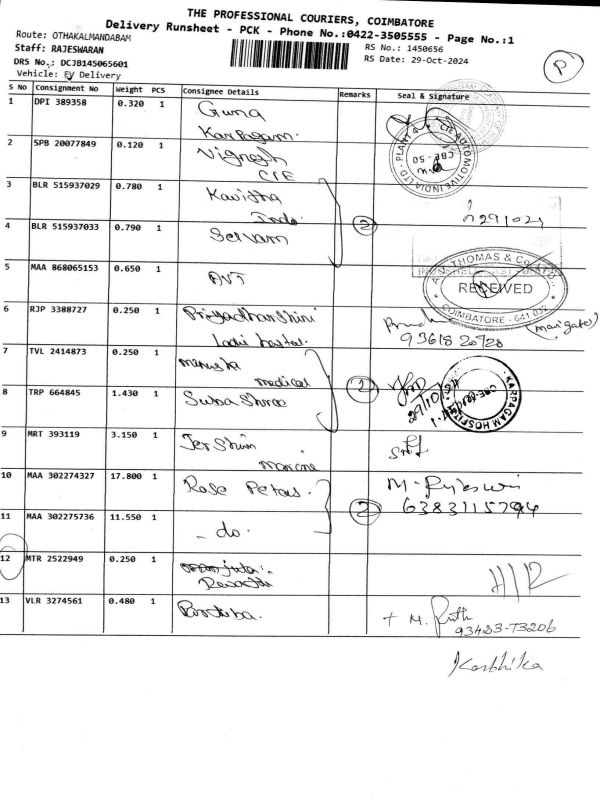 THE PROFESSIONAL COURIERS, COIMBATORE
Delivery Runsheet - PCK - Phone No.:0422-3505555 - Page No.:1
Route: OTHAKALMANDABAM
RS No.: 1450656
Staff: RAJESWARAN
RS Date: 29-Oct-2024
DRS No.: DCJB145065601
P
Vehicle: EV Delivery
S No Consignment No Weight PCS Consignee Details Remarks Seal & Signature
1 DPI 389358 0.320 1 Guna
Karpagam.
2 SPB 20077849 0.120 1 Vignesh
CIE
CIE AUTOMOTIVE INDIA LTD - PLANT
CBE - 50
3 BLR 515937029 0.780 1 Kavitha
Indo
4 BLR 515937033 0.790 1 Selvam 2
5 MAA 868065153 0.650 1 AVT
THOMAS & Co
RECEIVED
COIMBATORE - 641 032
6 RJP 3388727 0.250 1 Priyadharshini
hostel
93618 20728
7 TVL 2414873 0.250 1
medical
8 TRP 664845 1.430 1 Suba Shree 2
KARPAGAM HOSPITAL
9 MRT 393119 3.150 1 Jershim
Marine
10 MAA 302274327 17.800 1 Rose Petas.
M. Rajeswi
6383115794
2
11 MAA 302275736 11.550 1 - do.
12 MTR 2522949 0.250 1
13 VLR 3274561 0.480 1
+ M. Ruth
93423-73206
Karthika